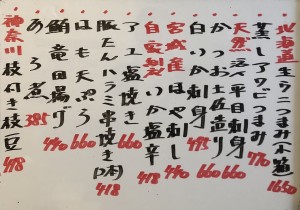 北海道 生ウニつまみ(一箱) 1650
蒸しアワビつまみ 770
天然 活〆平目刺身 660
かつお土佐造り 660
白いか刺身
宮城産 ほや刺し 440
自家製 いか塩辛 418
アユ塩焼き 660
豚たんハラミ串焼き 418
はも天ぷら 660
鮪竜田揚げ 440
あら煮 385
神奈川 枝付き枝豆 418